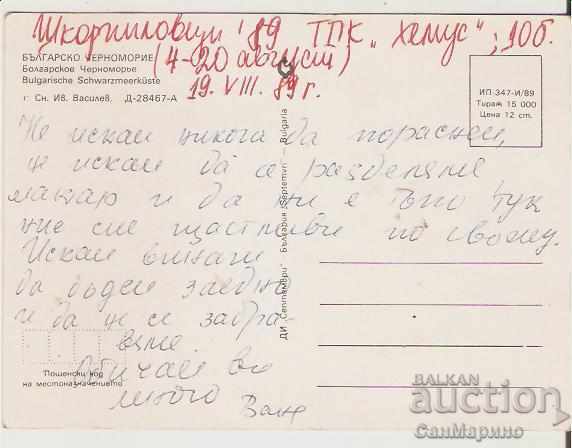 Шкорпиловци '89 ТПК "Хемус", 10б.
(4-20 август)
19. VIII. 89 г.
БЪЛГАРСКО ЧЕРНОМОРИЕ
Болгарское Черноморье
Bulgarische Schwarzmeerküste
г Сн. Ив. Василев. Д-28467-А
ИП-347-И/89
Тираж 15 000
Цена 12 ст.
Не искам никога да пораснем,
не искам да се разделяме,
макар и да ни е тук
ние сме щастливи по своему.
Искам винаги
да бъдем заедно
и да не се забра-
вяме.
Обичам ви
много
ДИ „Септември" България Septemvri — Bulgaria
Пощенски код
на местоназначението
BALKAN
auction
СанМарино